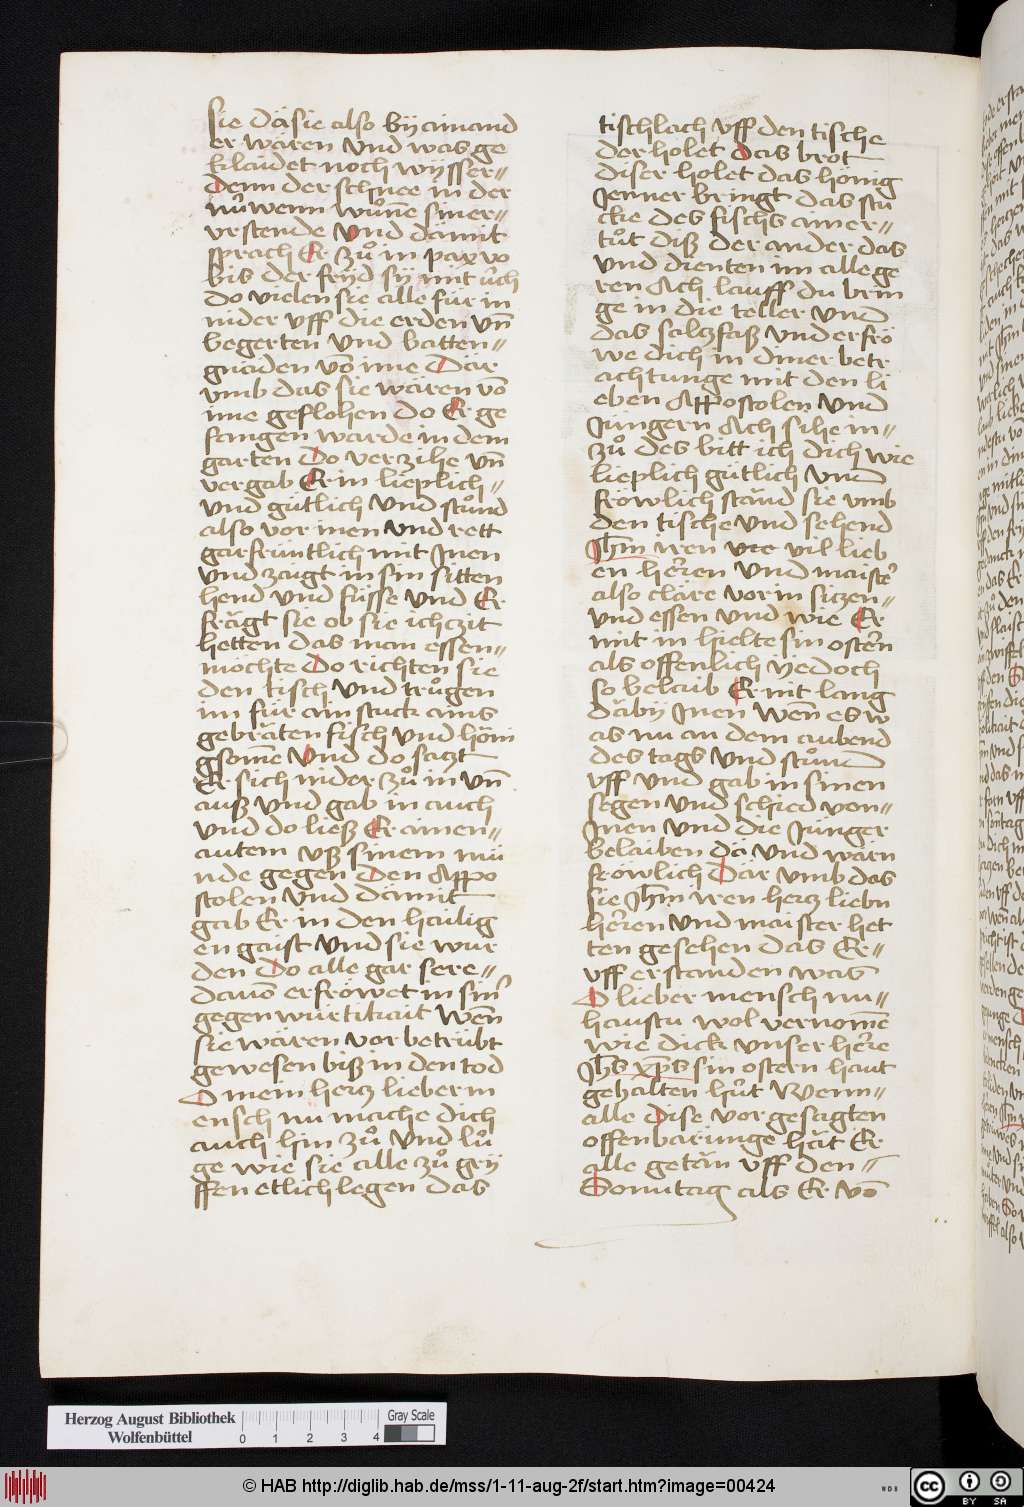 sie dä sie also bÿ ainand
er wären vnd was ge
klaidet noch wÿsser=
Denn der schnee in der
nů wenn wům̄e siner=
vrstende vnd damit
sprach Er zů in pax vo
bis der frÿd sÿ mit üch
do vielen sie alle für in
nider vff die erden vn̄
begerten vnd batten=
gnäden vō ime Där
vmb das sie wären vō
ime geflohen do Er ge
fangen warde in dem
garten Do verzihe vn̄
vergab Er in lieplich=
vnd gütlich vnd stůnd
also vor inen vnd rett
gar früntlich mit Jnen
vnd zaigt in sin sitten
hend vnd füsse vnd Er
frägt sie ob sie ichzit
hetten das man essen=
möchte Do richten sie
den tisch vnd trůgen
im für ain stuck ains
gebräten fisch vnd höni
gsom̄e Vnd do sazt
Er sich nider zů in vn̄
auß vnd gab in auch
vnd do ließ Er ainen=
autem vß sinem mu
nde gegen den Appo
stolen vnd dämit
gab Er in den hailig
en gaist vnd sie wur
den Do alle gar sere=
dauō erfröwet in sin'
gegen würtikait Wen̄
sie wären vor betrübt
gewesen biß in den tod
O mein herz lieber m
ensch nu mache dich
auch hin zů vnd lů
ge wie sie alle zů grÿ
ffen etlich legen das
tischlach vff den tische
der holet das brot
diser holet das hönig
Jenner bringt das stu
cke des fischs ainer=
tůt diß der ander das
vnd dienten im alle ge
ren Ach lauff du brin
ge in die teller vnd
das salczfaß vnd erfrö
we dich in diner betr
achtunge mit den li
eben Appostolen vnd
Jüngern Ach sihe in=
zů des bitt ich dich wie
lieplich gütlich vnd
fröwlich ständ sie vmb
den tische vnd sehend
Jhm̄ iren vie vil lieb
en her̄en vnd maister
also cläre vor in siczen=
vnd essen vnd wie Er
mit in hielte sin ostern
als offenlich ÿedoch
so belaib Er nit lang
däbÿ Jnen Wen̄ es w
as nu an dem aubend
des tags vnd stůnd
vff vnd gab in sinen
segen vnd schied von=
Jnen vnd die Jünger
belaiben dä vnd wärn
fröwlich Där vmb das
sie Jhm̄ iren herz liebn
her̄en vnd maister het
ten gesehen das Er=
vff erstanden was
O lieber mensch nu=
haustu wol vernom̄e
wie dick vnser her̄e
Jhs xp̄s sin ostern haut
gehalten hüt Wenn=
alle dise vor gesagten
offenbarunge hät Er
alle getän vff den=
Sonntag als Er vō
Herzog August Bibliothek
Wolfenbüttel
0 1 2 3 4
Gray Scale
© HAB http://diglib.hab.de/mss/1-11-aug-2f/start.htm?image=00424
cc BY SA